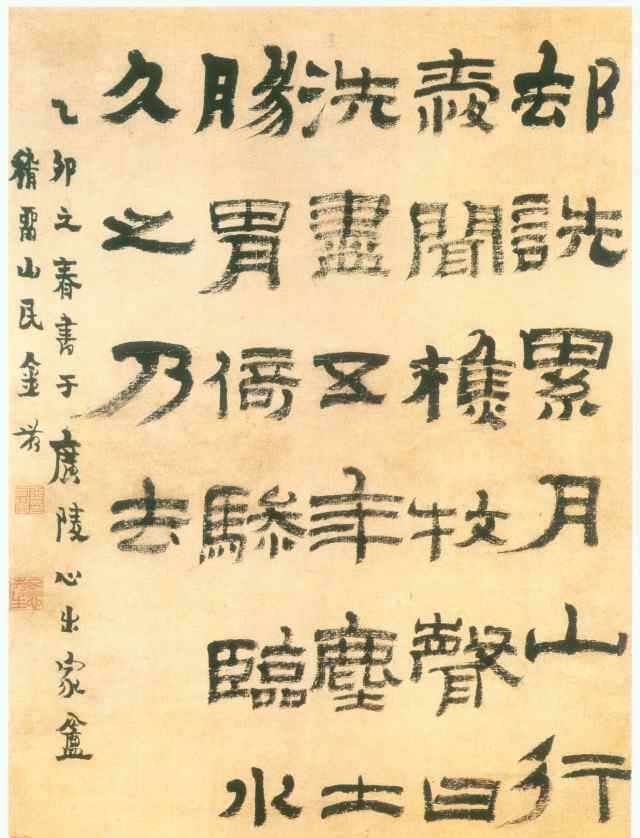 郄詵累月山行
聞樵牧聲曰
洗盡五年塵土
腸胃倚驂臨水
久之乃去
乙卯之春書于廣陵心出家盦
稽畱山民金農